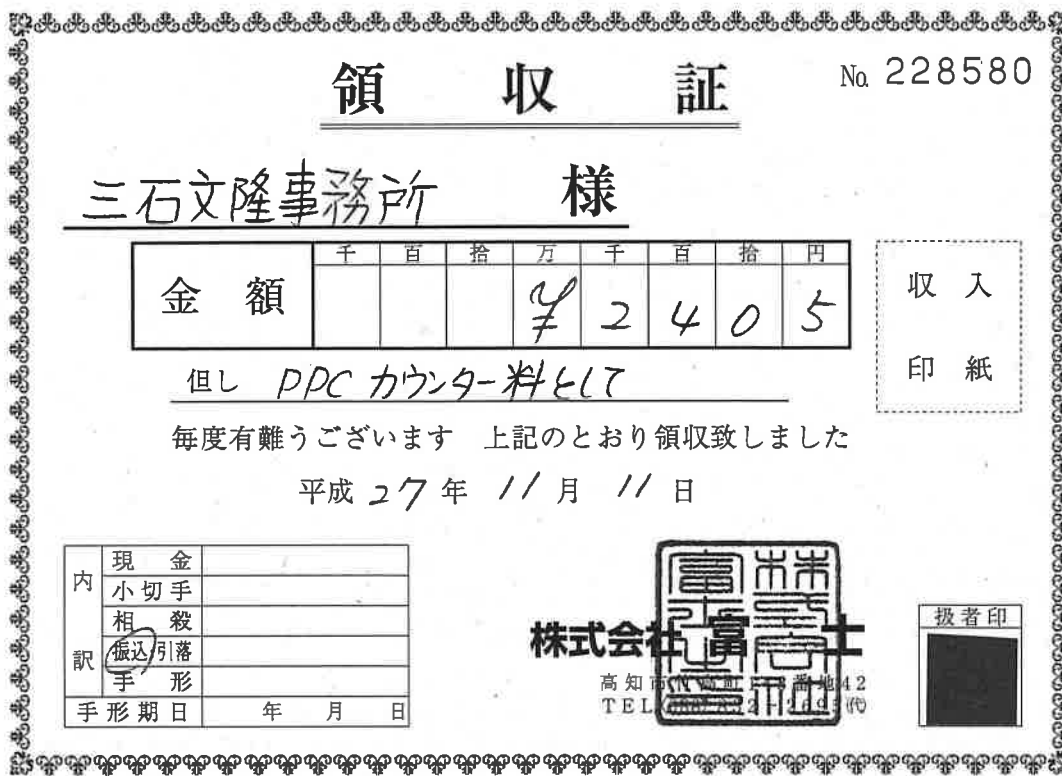 領収証
No. 228580
三石文隆事務所 様
金額 千 百 拾 万 千 百 拾 円
¥ 2 4 0 5
収入
印紙
但し PPCカウンター料として
毎度有難うございます 上記のとおり領収致しました
平成 27 年 11 月 11 日
内訳
現金
小切手
相殺
振込/引落
手形
手形期日 年 月 日
株式会社 富士
高知市
番地42
TEL
扱者印